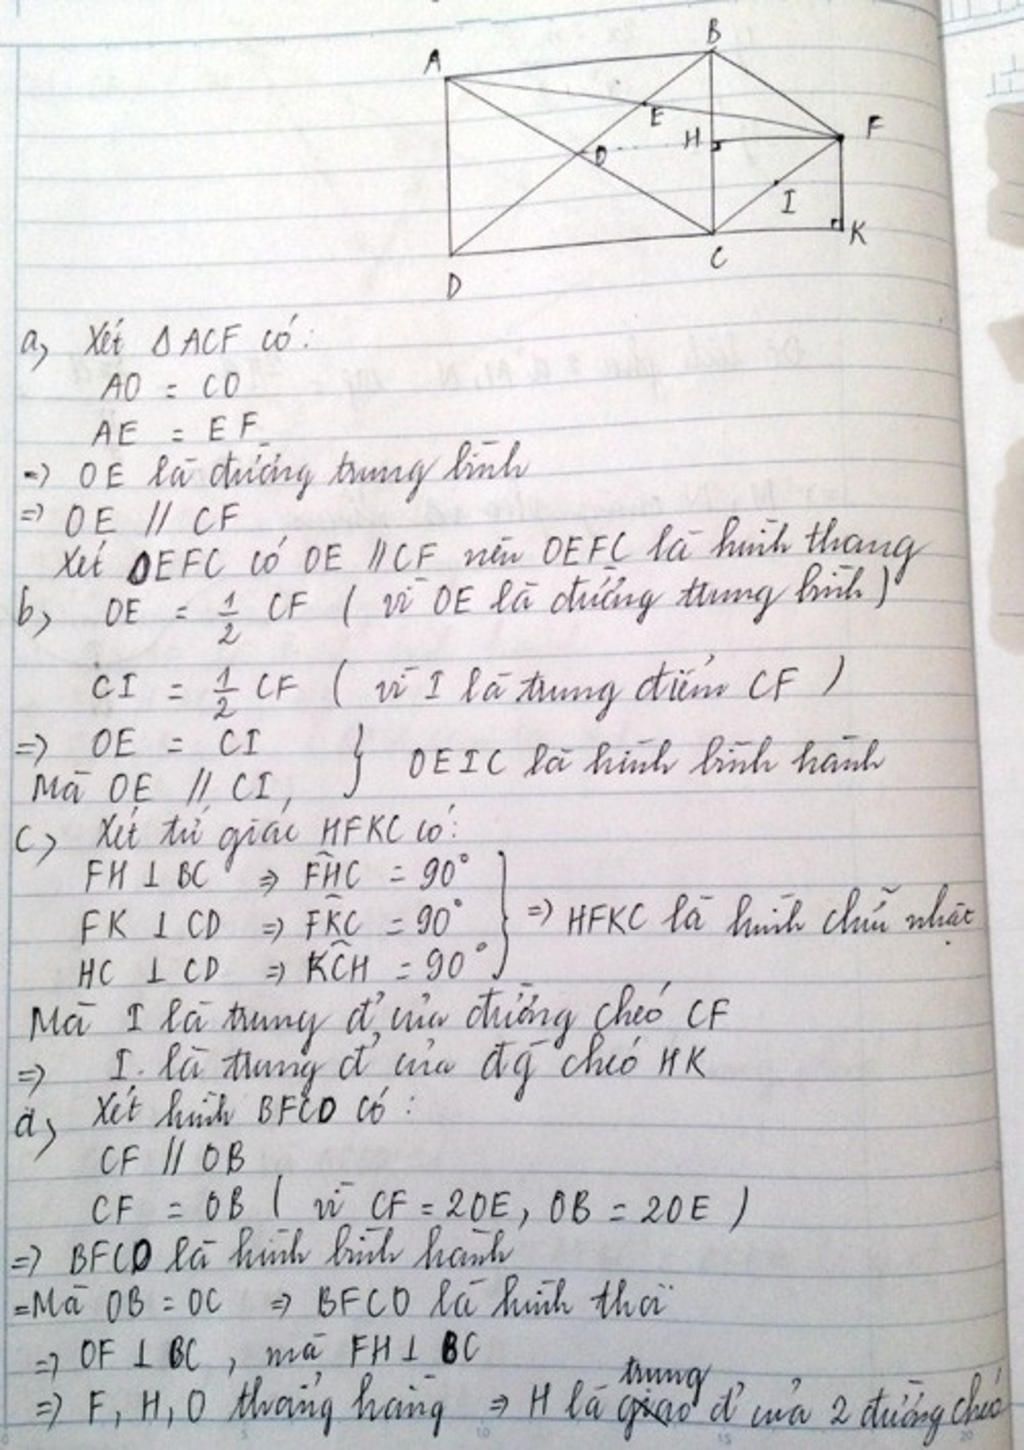 A
B
E
H
F
O
I
K
D
C
a, Xét Δ ACF có:
AO = CO
AE = EF
=> OE là đường trung bình
=> OE // CF
Xét OEFC có OE // CF nên OEFC là hình thang
b, OE = 1/2 CF ( vì OE là đường trung bình )
CI = 1/2 CF ( vì I là trung điểm CF )
=> OE = CI
Mà OE // CI, } OEIC là hình bình hành
c, Xét tứ giác HFKC có:
FH ⊥ BC => FHC = 90°
FK ⊥ CD => FKC = 90° } => HFKC là hình chữ nhật
HC ⊥ CD => KCH = 90°
Mà I là trung đ' của đường chéo CF
=> I là trung đ' của đg chéo HK
d, Xét hình BFCO có:
CF // OB
CF = OB ( vì CF = 2OE, OB = 2OE )
=> BFCO là hình bình hành
=Mà OB = OC => BFCO là hình thoi
=> OF ⊥ BC, mà FH ⊥ BC
trung
=> F, H, O thẳng hàng => H là giao đ' của 2 đường chéo